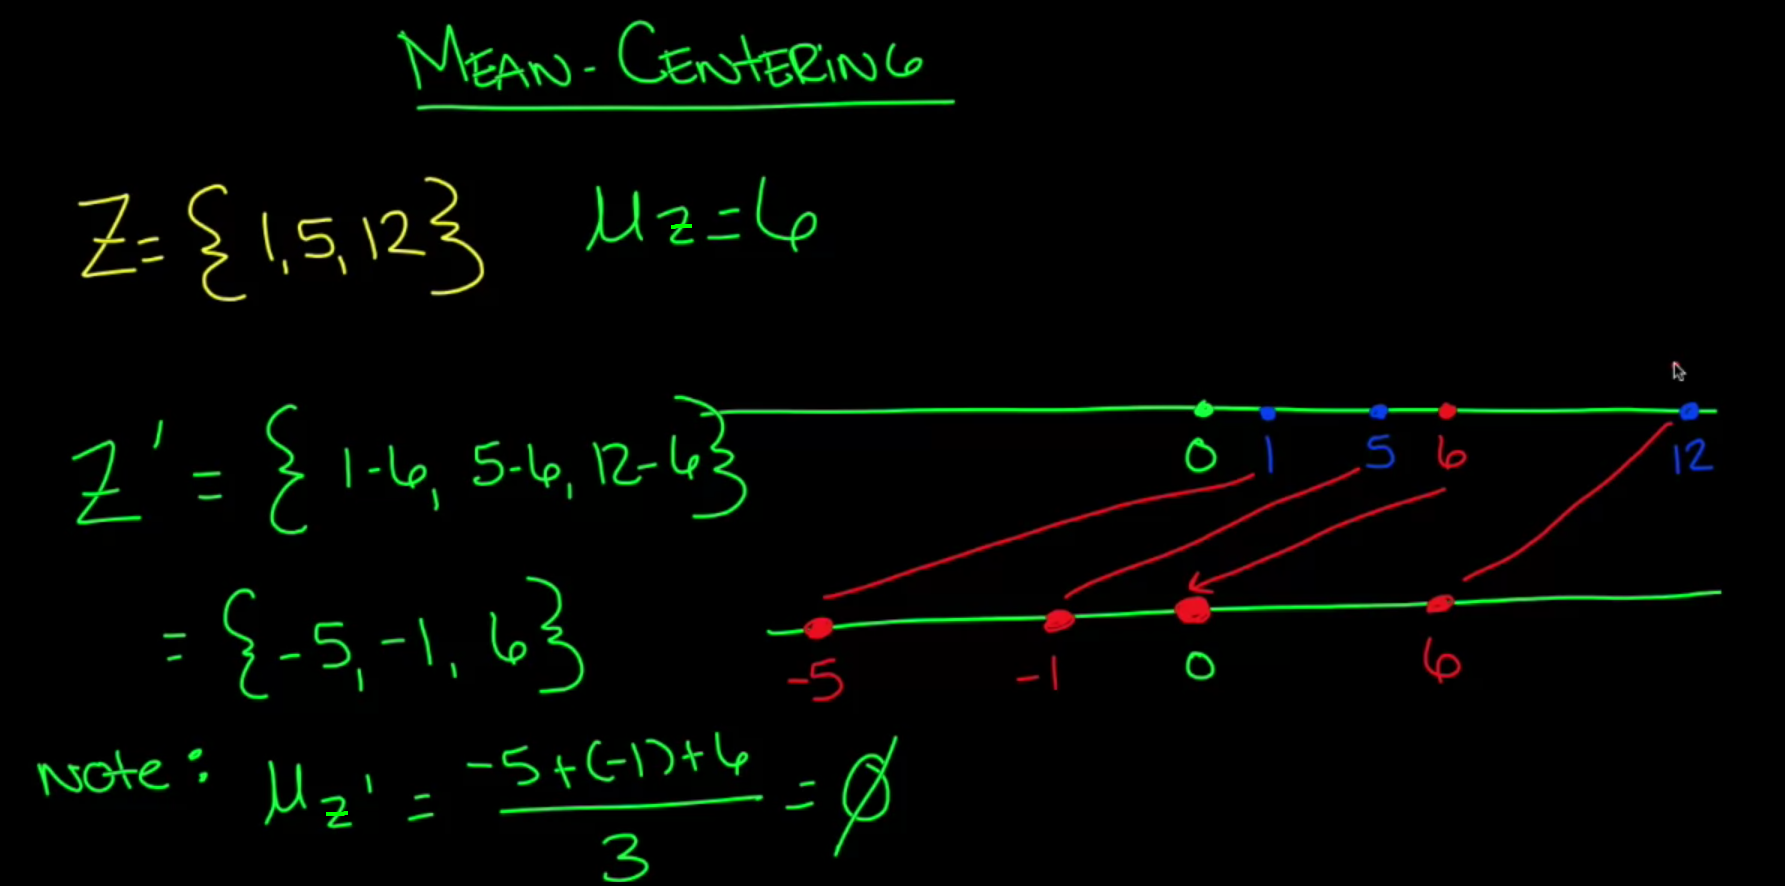 MEAN-CENTERING
Z = {1, 5, 12} μz = 6
Z' = {1-6, 5-6, 12-6}
0 1 5 6 12
= {-5, -1, 6}
-5 -1 0 6
NOTE: μz' = -5+(-1)+6 / 3 = ∅